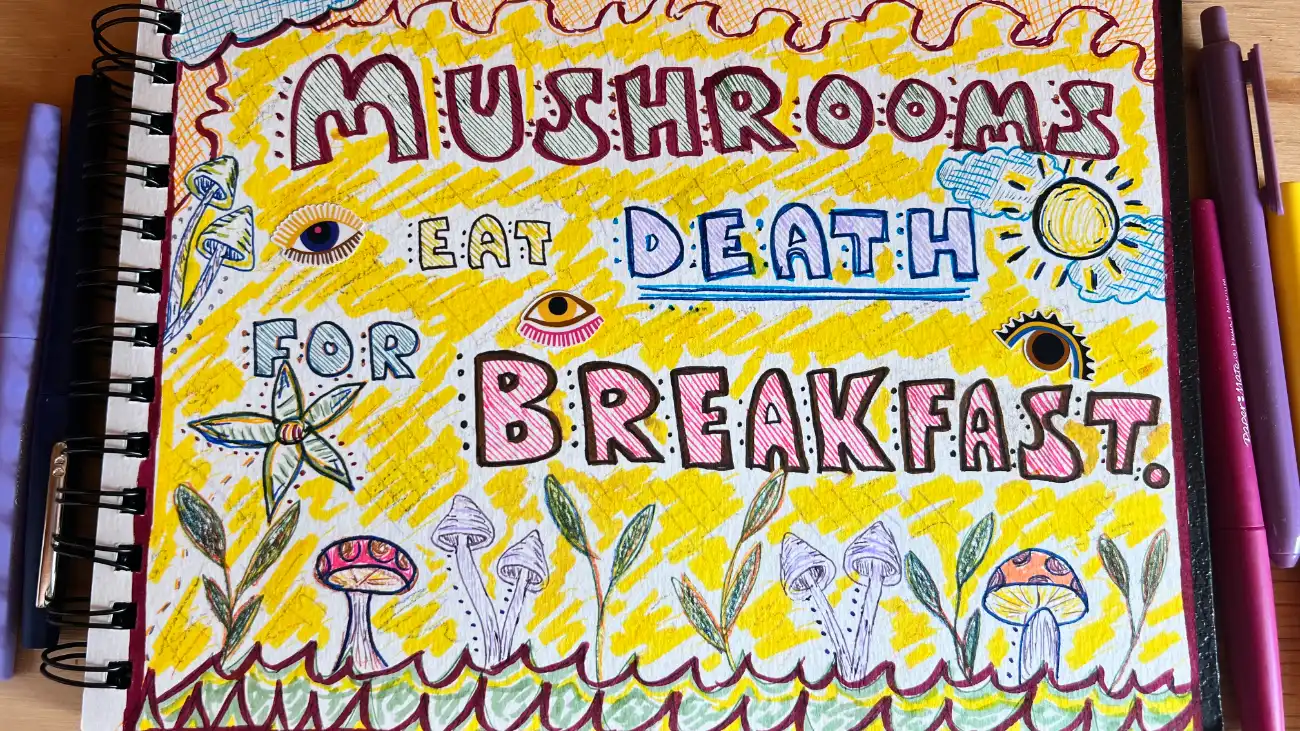 MUSHROOMS
EAT DEATH
FOR
BREAKFAST.
PAPER:MATE